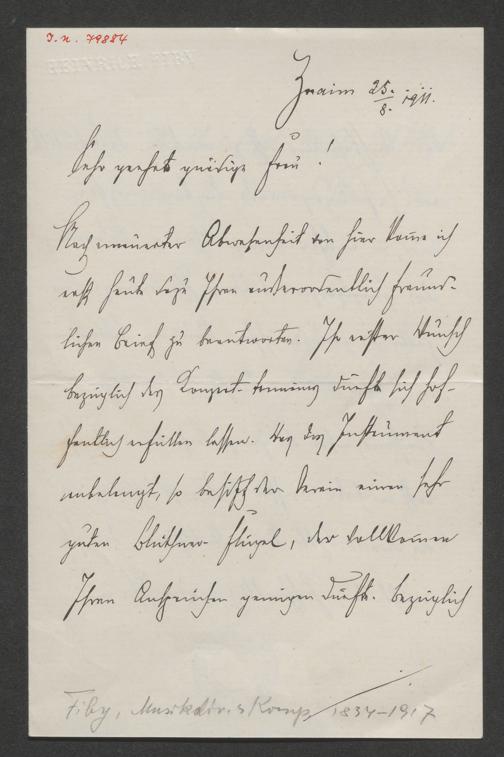 I. N. 79884
HEINRICH FIBY
Znaim 25./8. 1911.
Sehr geehrte gnädige Frau!
Nach erneuerter Abwesenheit von hier komme ich
erst heute dazu Ihren außerordentlich freund-
lichen Brief zu beantworten. Ihr erster Wunsch
bezüglich des Konzert-termines dürfte sich hof-
fentlich erfüllen lassen. Was das Instrument
anbelangt, so besitzt der Verein einen sehr
guten Blüthner-Flügel, der vollkommen
Ihren Ansprüchen genügen dürfte. Bezüglich
Fiby, Musikdir. & Komp 1834–1917